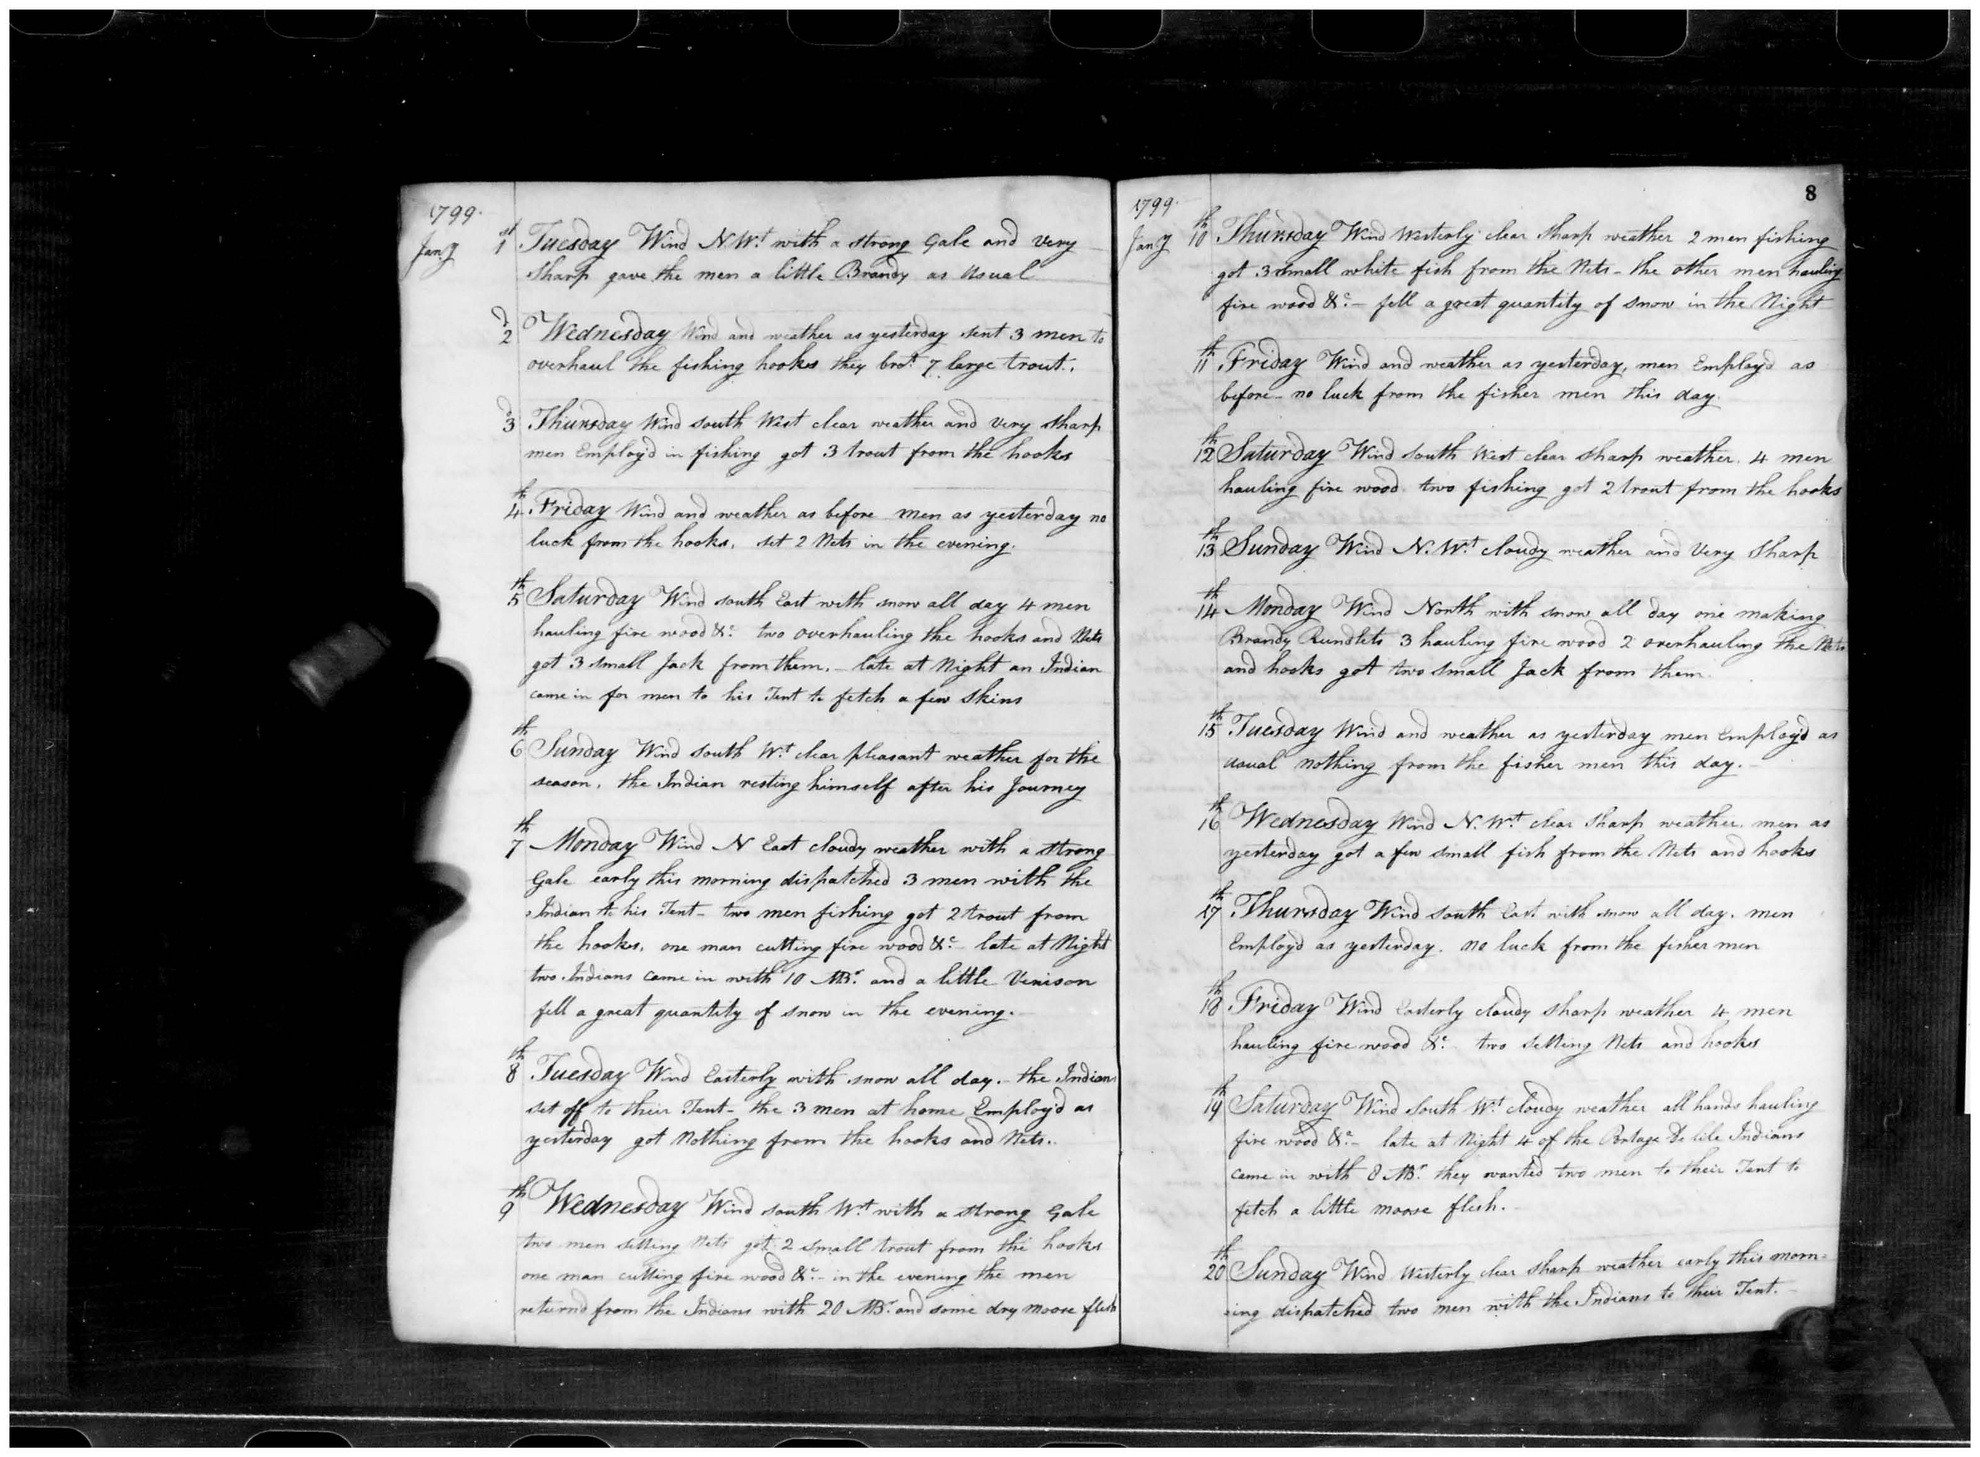 1799.
Jany 1st Tuesday Wind N.Wt with a strong Gale and very
sharp gave the men a little Brandy as usual
2d Wednesday Wind and weather as yesterday sent 3 men to
overhaul the fishing hooks they brot 7 large trout.
3d Thursday Wind south West clear weather and very sharp
men Employ'd in fishing got 3 trout from the hooks
4th Friday Wind and weather as before men as yesterday no
luck from the hooks, set 2 Nets in the evening.
5th Saturday Wind south East with snow all day 4 men
hauling fire wood &c. two overhauling the hooks and Nets
got 3 small Jack from them, - late at Night an Indian
came in for men to his Tent to fetch a few skins
6th Sunday Wind south Wt clear pleasant weather for the
season, the Indian resting himself after his Journey
7th Monday Wind N East cloudy weather with a strong
Gale early this morning dispatched 3 men with the
Indian to his Tent - two men fishing got 2 trout from
the hooks, one man cutting fire wood &c - late at Night
two Indians came in with 10 MBr. and a little Venison
fell a great quantity of snow in the evening.
8th Tuesday Wind Easterly with snow all day. - the Indians
set off to their Tent - the 3 men at home Employ'd as
yesterday got Nothing from the hooks and Nets.
9th Wednesday Wind south Wt with a strong Gale
two men setting Nets got 2 small trout from the hooks
one man cutting fire wood &c - in the evening the men
return'd from the Indians with 20 MBr. and some dry moose flesh
8
1799.
Jany 10th Thursday Wind Westerly clear sharp weather 2 men fishing
got 3 small white fish from the Nets - the other men hauling
fire wood &c. - fell a great quantity of snow in the Night
11th Friday Wind and weather as yesterday, men Employ'd as
before - no luck from the fisher men this day.
12th Saturday Wind south West clear sharp weather. 4 men
hauling fire wood two fishing got 2 trout from the hooks
13th Sunday Wind N.Wt cloudy weather and very sharp
14th Monday Wind North with snow all day one making
Brandy Rundlets 3 hauling fire wood 2 overhauling the Nets
and hooks got two small Jack from them.
15th Tuesday Wind and weather as yesterday men Employ'd as
usual nothing from the fisher men this day. -
16th Wednesday Wind N.Wt clear sharp weather. men as
yesterday got a few small fish from the Nets and hooks
17th Thursday Wind south East with snow all day. men
Employ'd as yesterday. no luck from the fisher men
18th Friday Wind Easterly cloudy sharp weather 4 men
hauling fire wood &c. two setting Nets and hooks
19th Saturday Wind south Wt cloudy weather all hands hauling
fire wood &c. - late at Night 4 of the Portage De Lile Indians
came in with 8 MBr. they wanted two men to their Tent to
fetch a little moose flesh. -
20th Sunday Wind Westerly clear sharp weather early this morn=
=ing dispatched two men with the Indians to their Tent. -